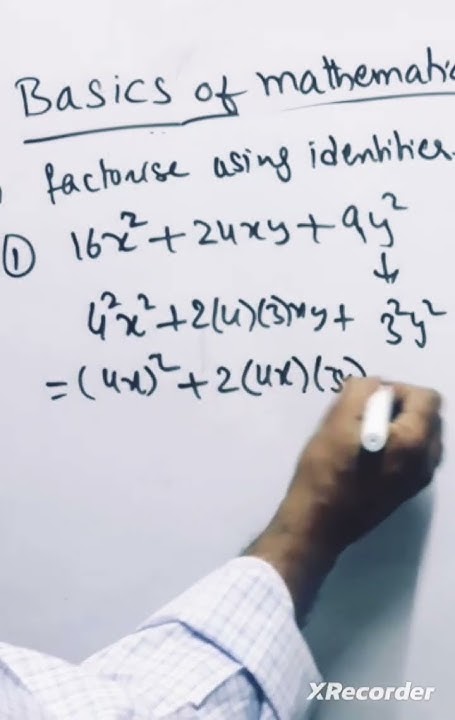 Basics of mathematic
factorise using identities.
① 16x² + 24xy + 9y²
↓
4²x² + 2(4)(3)xy + 3²y²
= (4x)² + 2(4x)(3y)
XRecorder